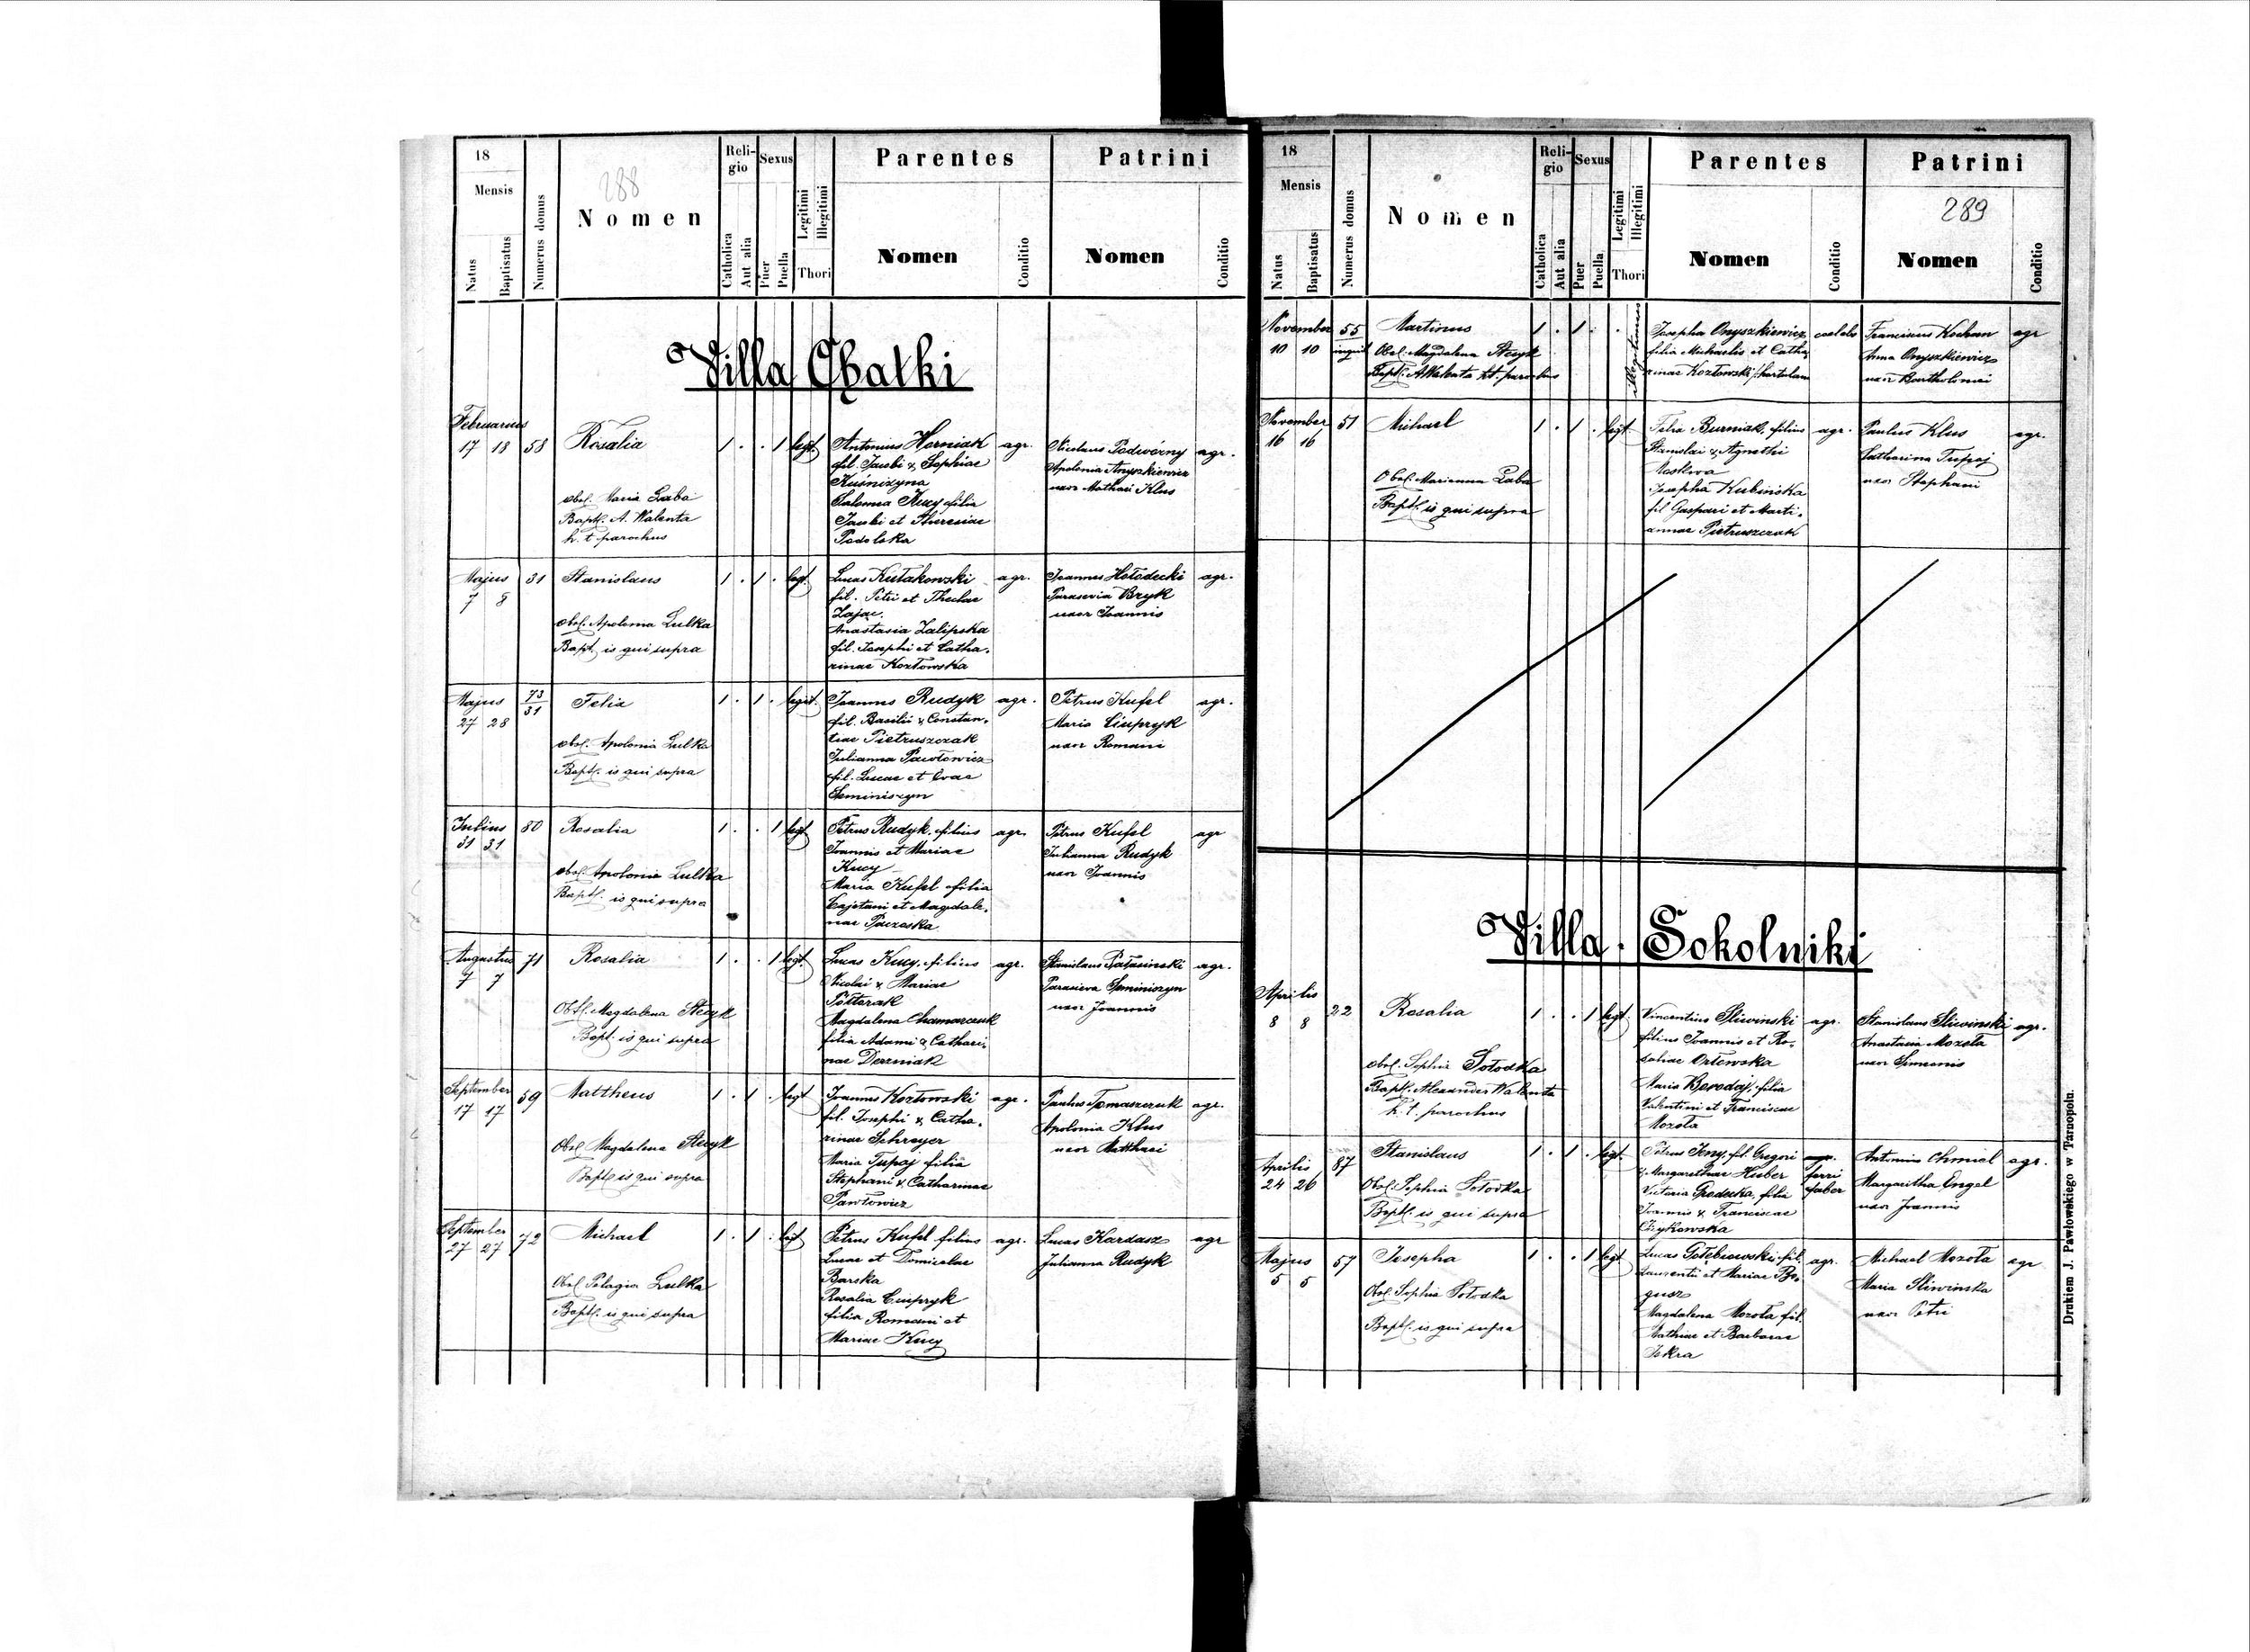 18
Mensis
Natus
Baptisatus
Numerus domus
288
Nomen
Religio
Catholica
Aut alia
Sexus
Puer
Puella
Legitimi
Illegitimi
Thori
Parentes
Nomen
Conditio
Patrini
Nomen
Conditio
Villa Chatki
Februarius
17 18 58
Rosalia
1 . . 1 legt.
obst. Maria Łaba
Bapt. A. Walenta
h. t. parochus
Antonius Horniak agr.
fil. Jacobi & Sophiae
Kuśniżyna
Salomea Kucy filia
Jacobi et Theresiae
Podolska
Nicolaus Podwórny agr.
Apolonia Anyszkiewicz
uxor Mathaei Klus
Majus 31
7 8
Stanislaus
1 . 1 . legt.
obst. Apolonia Lulka
Bapt. is qui supra
Lucas Kułakowski agr.
fil. Petri et Theclae
Zając
Anastasia Zalipska
fil. Josephi et Catha-
rinae Kozłowska
Joannes Hołodecki agr.
Parasevia Bzyk
uxor Joannis
Majus 73/31
27 28
Felix
1 . 1 . legit.
obst. Apolonia Lulka
Bapt. is qui supra
Joannes Rudyk agr.
fil. Basilii & Constan-
tiae Pietruszczak
Julianna Pawłowicz
fil. Lucae et Evae
Seminiszyn
Petrus Kufel agr.
Maria Ciupryk
uxor Romani
Julius 80
31 31
Rosalia
1 . . 1 legt
obst. Apolonia Lulka
Bapt. is qui supra
Petrus Rudyk, filius agr.
Joannis et Mariae
Kucy
Maria Kufel filia
Cajetani et Magdale-
nae
Petrus Kufel agr
Julianna Rudyk
uxor Joannis
Augustus 71
7 7
Rosalia
1 . . 1 legt.
Obst. Magdalena Stecyk
Bapt. is qui supra
Lucas Kucy, filius agr.
Nicolai & Mariae
Półtorak
Magdalena Chamarczuk
filia Adami & Cathari-
nae Derzniak
Stanislaus Patasinski agr.
Parasieva Seminiszyn
uxor Joannis
September 59
17 17
Mattheus
1 . 1 . legt
Obst. Magdalena Stecyk
Bapt. is qui supra
Joannes Kozłowski agr.
fil. Josephi & Catha-
rinae Schreyer
Maria Tupaj filia
Stephani & Catharinae
Pawłowicz
Paulus Tomaszczuk agr.
Apolonia Klus
uxor Matthaei
September 72
27 27
Michael
1 . 1 . legt
Obst. Pelagia Lulka
Bapt. is qui supra
Petrus Kufel filius agr.
Lucae et Domicelae
Barska
Rosalia Ciupryk
filia Romani et
Mariae Kucy
Lucas Kardasz agr
Julianna Rudyk
18
Mensis
Natus
Baptisatus
Numerus domus
Nomen
Religio
Catholica
Aut alia
Sexus
Puer
Puella
Legitimi
Illegitimi
Thori
Parentes
Nomen
Conditio
Patrini
289
Nomen
Conditio
November 55
10 10 inquil
Martinus
1 . 1 . . illegitimus
Obst. Magdalena Stecyk
Bapt. AWalenta h.t. parochus
Josepha Onyszkiewicz
filia Michaelis et Catha
rinae Kozłowski
Franciscus Kochan agr
Anna Onyszkiewicz
uxor Bartholomei
November 51
16 16
Michael
1 . 1 . legt
Obst. Marianna Łaba
Bapt. is qui supra
Felix Burniak, filius agr.
Stanislai & Agnethi
Moskwa
Josepha Kubińska
fil Gaspari et Mari-
annae Pietruszczak
Paulus Klus agr.
Catharina Tupaj
uxor Stephani
Villa Sokolniki
Aprilis
8 8 22
Rosalia
1 . . 1 legt
obst. Sophia Sołodka
Bapt. Alexander Walenta
h. t. parochus
Vincentius Sliwinski agr.
filius Joannis et Ro-
saliae Orłowska
Maria Borodaj, filia
Valentini et Franciscae
Mozoła
Stanislaus Sliwinski agr.
Anastasia Mozoła
uxor Simeonis
Aprilis 87
24 26
Stanislaus
1 . 1 . legt.
Obst. Sophia Sołodka
Bapt. is qui supra
Petrus Jeny, fil. Gregori agr.
& Margarethae Huber ferri
Victoria Grodecka, filia faber
Joannis & Franciscae
Czykowska
Antonius Chmiel agr.
Margaritha Engel
uxor Joannis
Majus 57
5 5
Josepha
1 . . 1 legt
Obst. Sophia Sołodka
Bapt. is qui supra
Lucas Gołębiowski fil. agr.
Laurentii et Mariae Bo-
gusz
Magdalena Mozoła fil.
Mathiae et Barbarae
Iskra
Michael Mozoła agr
Maria Sliwinska
uxor Petri
Drukiem J. Pawłowskiego w Tarnopolu.